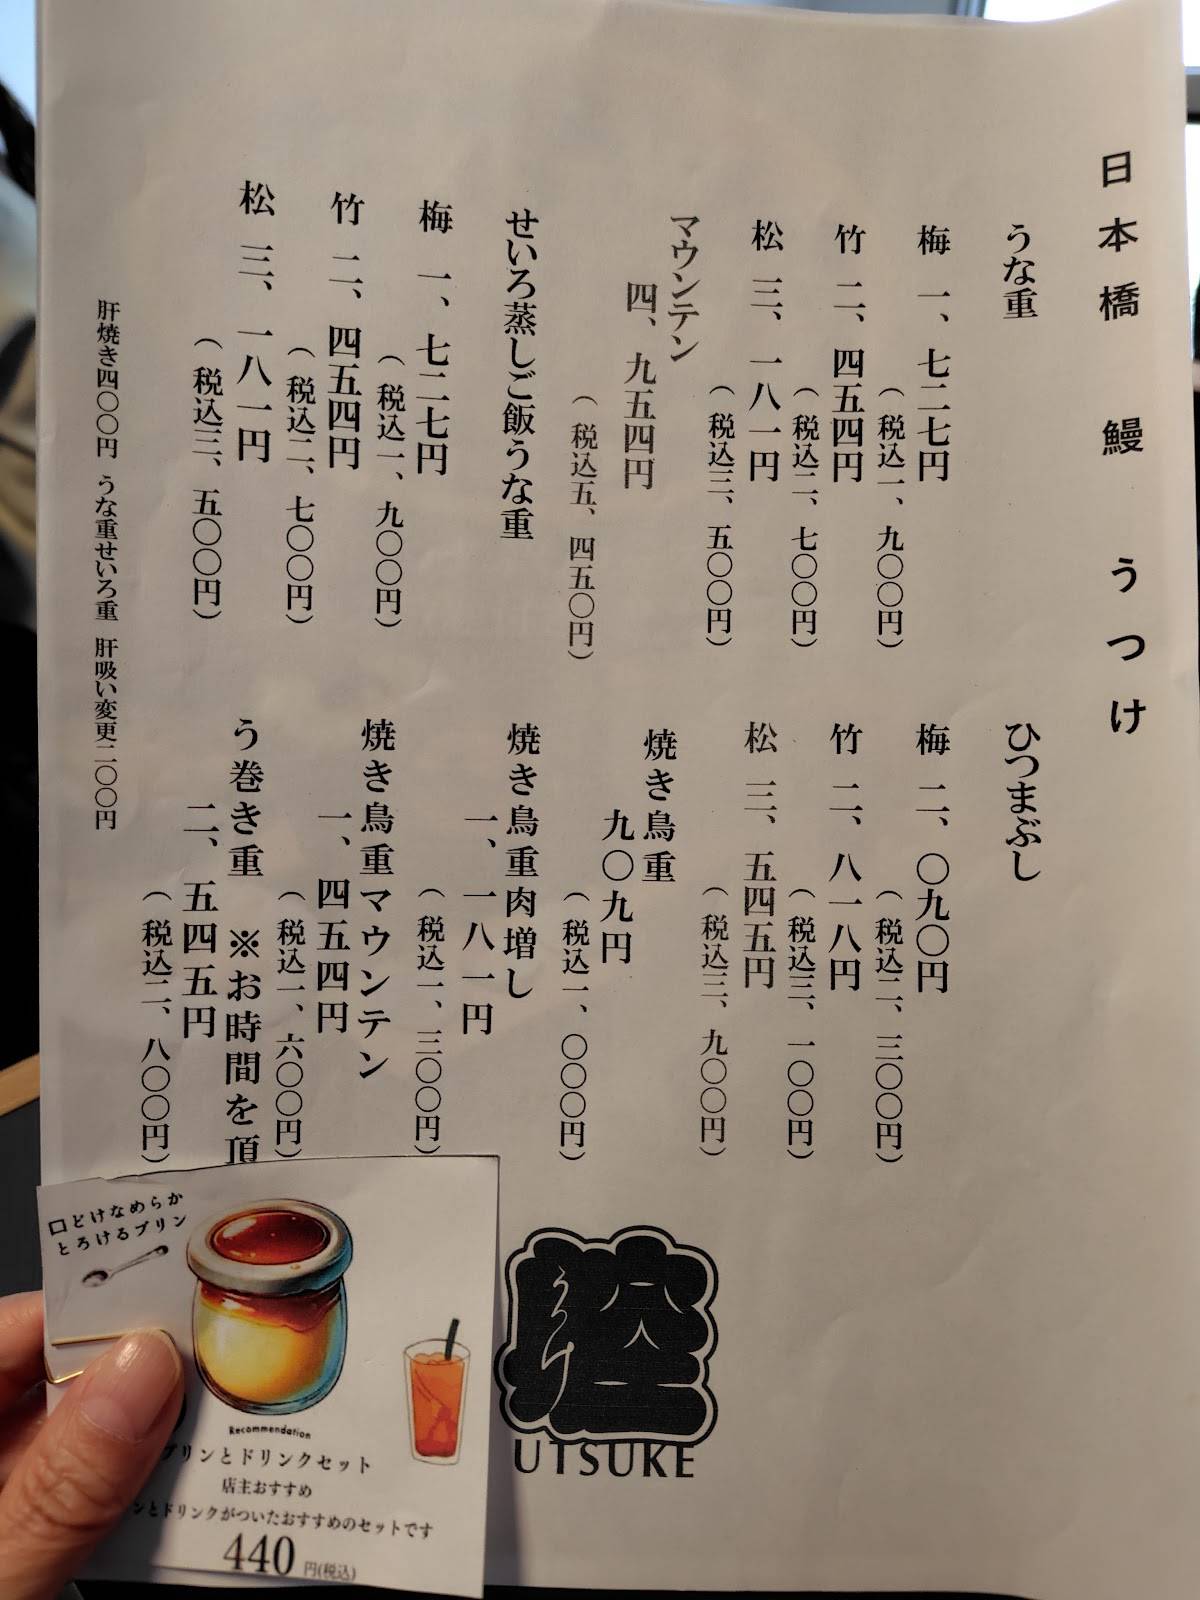 日本橋 鰻 うつけ
うな重
梅 一、七二七円
(税込一、九〇〇円)
竹 二、四五四円
(税込二、七〇〇円)
松 三、一八一円
(税込三、五〇〇円)
マウンテン
四、九五四円
(税込五、四五〇円)
せいろ蒸しご飯うな重
梅 一、七二七円
(税込一、九〇〇円)
竹 二、四五四円
(税込二、七〇〇円)
松 三、一八一円
(税込三、五〇〇円)
ひつまぶし
梅 二、〇九〇円
(税込二、三〇〇円)
竹 二、八一八円
(税込三、一〇〇円)
松 三、五四五円
(税込三、九〇〇円)
焼き鳥重
九〇九円
(税込一、〇〇〇円)
焼き鳥重肉増し
一、一八一円
(税込一、三〇〇円)
焼き鳥重マウンテン
一、四五四円
(税込一、六〇〇円)
う巻き重 ※お時間を頂
二、五四五円
(税込二、八〇〇円)
肝焼き四〇〇円 うな重せいろ重 肝吸い変更二〇〇円
うつけ
UTSUKE
口どけなめらか
とろけるプリン
Recommendation
プリンとドリンクセット
店主おすすめ
ンとドリンクがついたおすすめのセットです
440円(税込)